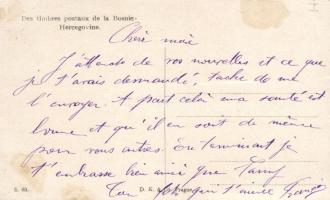 Des timbres postaux de la Bosnie-
Hercegovine.
Chère
J'attends de vos nouvelles et ce que
je t'avais demandé, tache de me
l'envoyer. A part cela ma santé est
bonne et qu'il en soit de même
pour vous autres. En terminant je
t'embrasse bien ainsi que
Ton qui t'aime
S. 61.
D. K. & Prague.